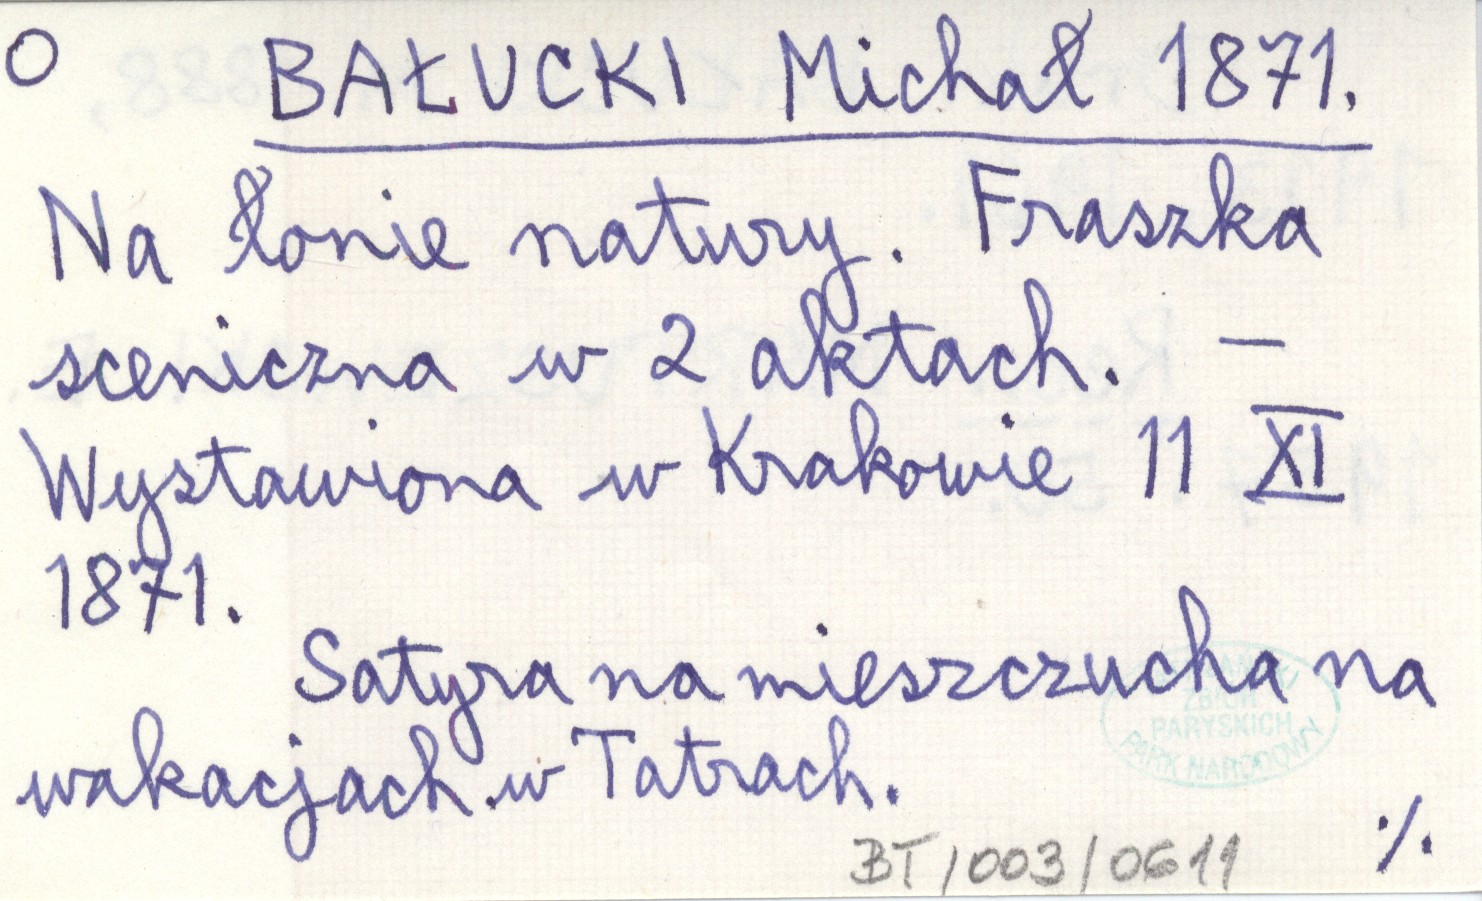 O BAŁUCKI Michał 1871.
Na łonie natury. Fraszka
sceniczna w 2 aktach. —
Wystawiona w Krakowie 11 XI
1871.
Satyra na mieszczucha na
wakacjach w Tatrach.
ZBIÓR
PARYSKICH
PARK NARODOWY
./.
BT/003/0611